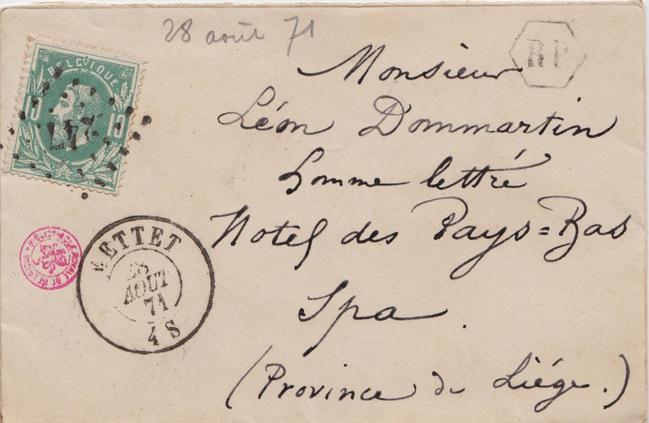 28 août 71
RP
BELGIQUE
10 10
247
Monsieur
Léon Dommartin
homme lettré
Hotel des Pays=Bas
Spa.
(Province de Liége.)
METTET
28
AOUT
71
4 S